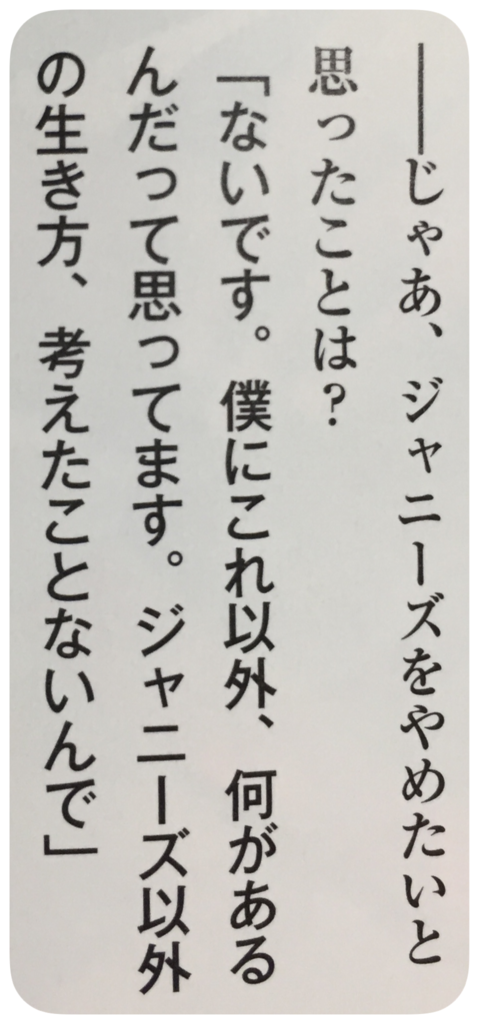 ――じゃあ、ジャニーズをやめたいと
思ったことは？
「ないです。僕にこれ以外、何がある
んだって思ってます。ジャニーズ以外
の生き方、考えたことないんで」